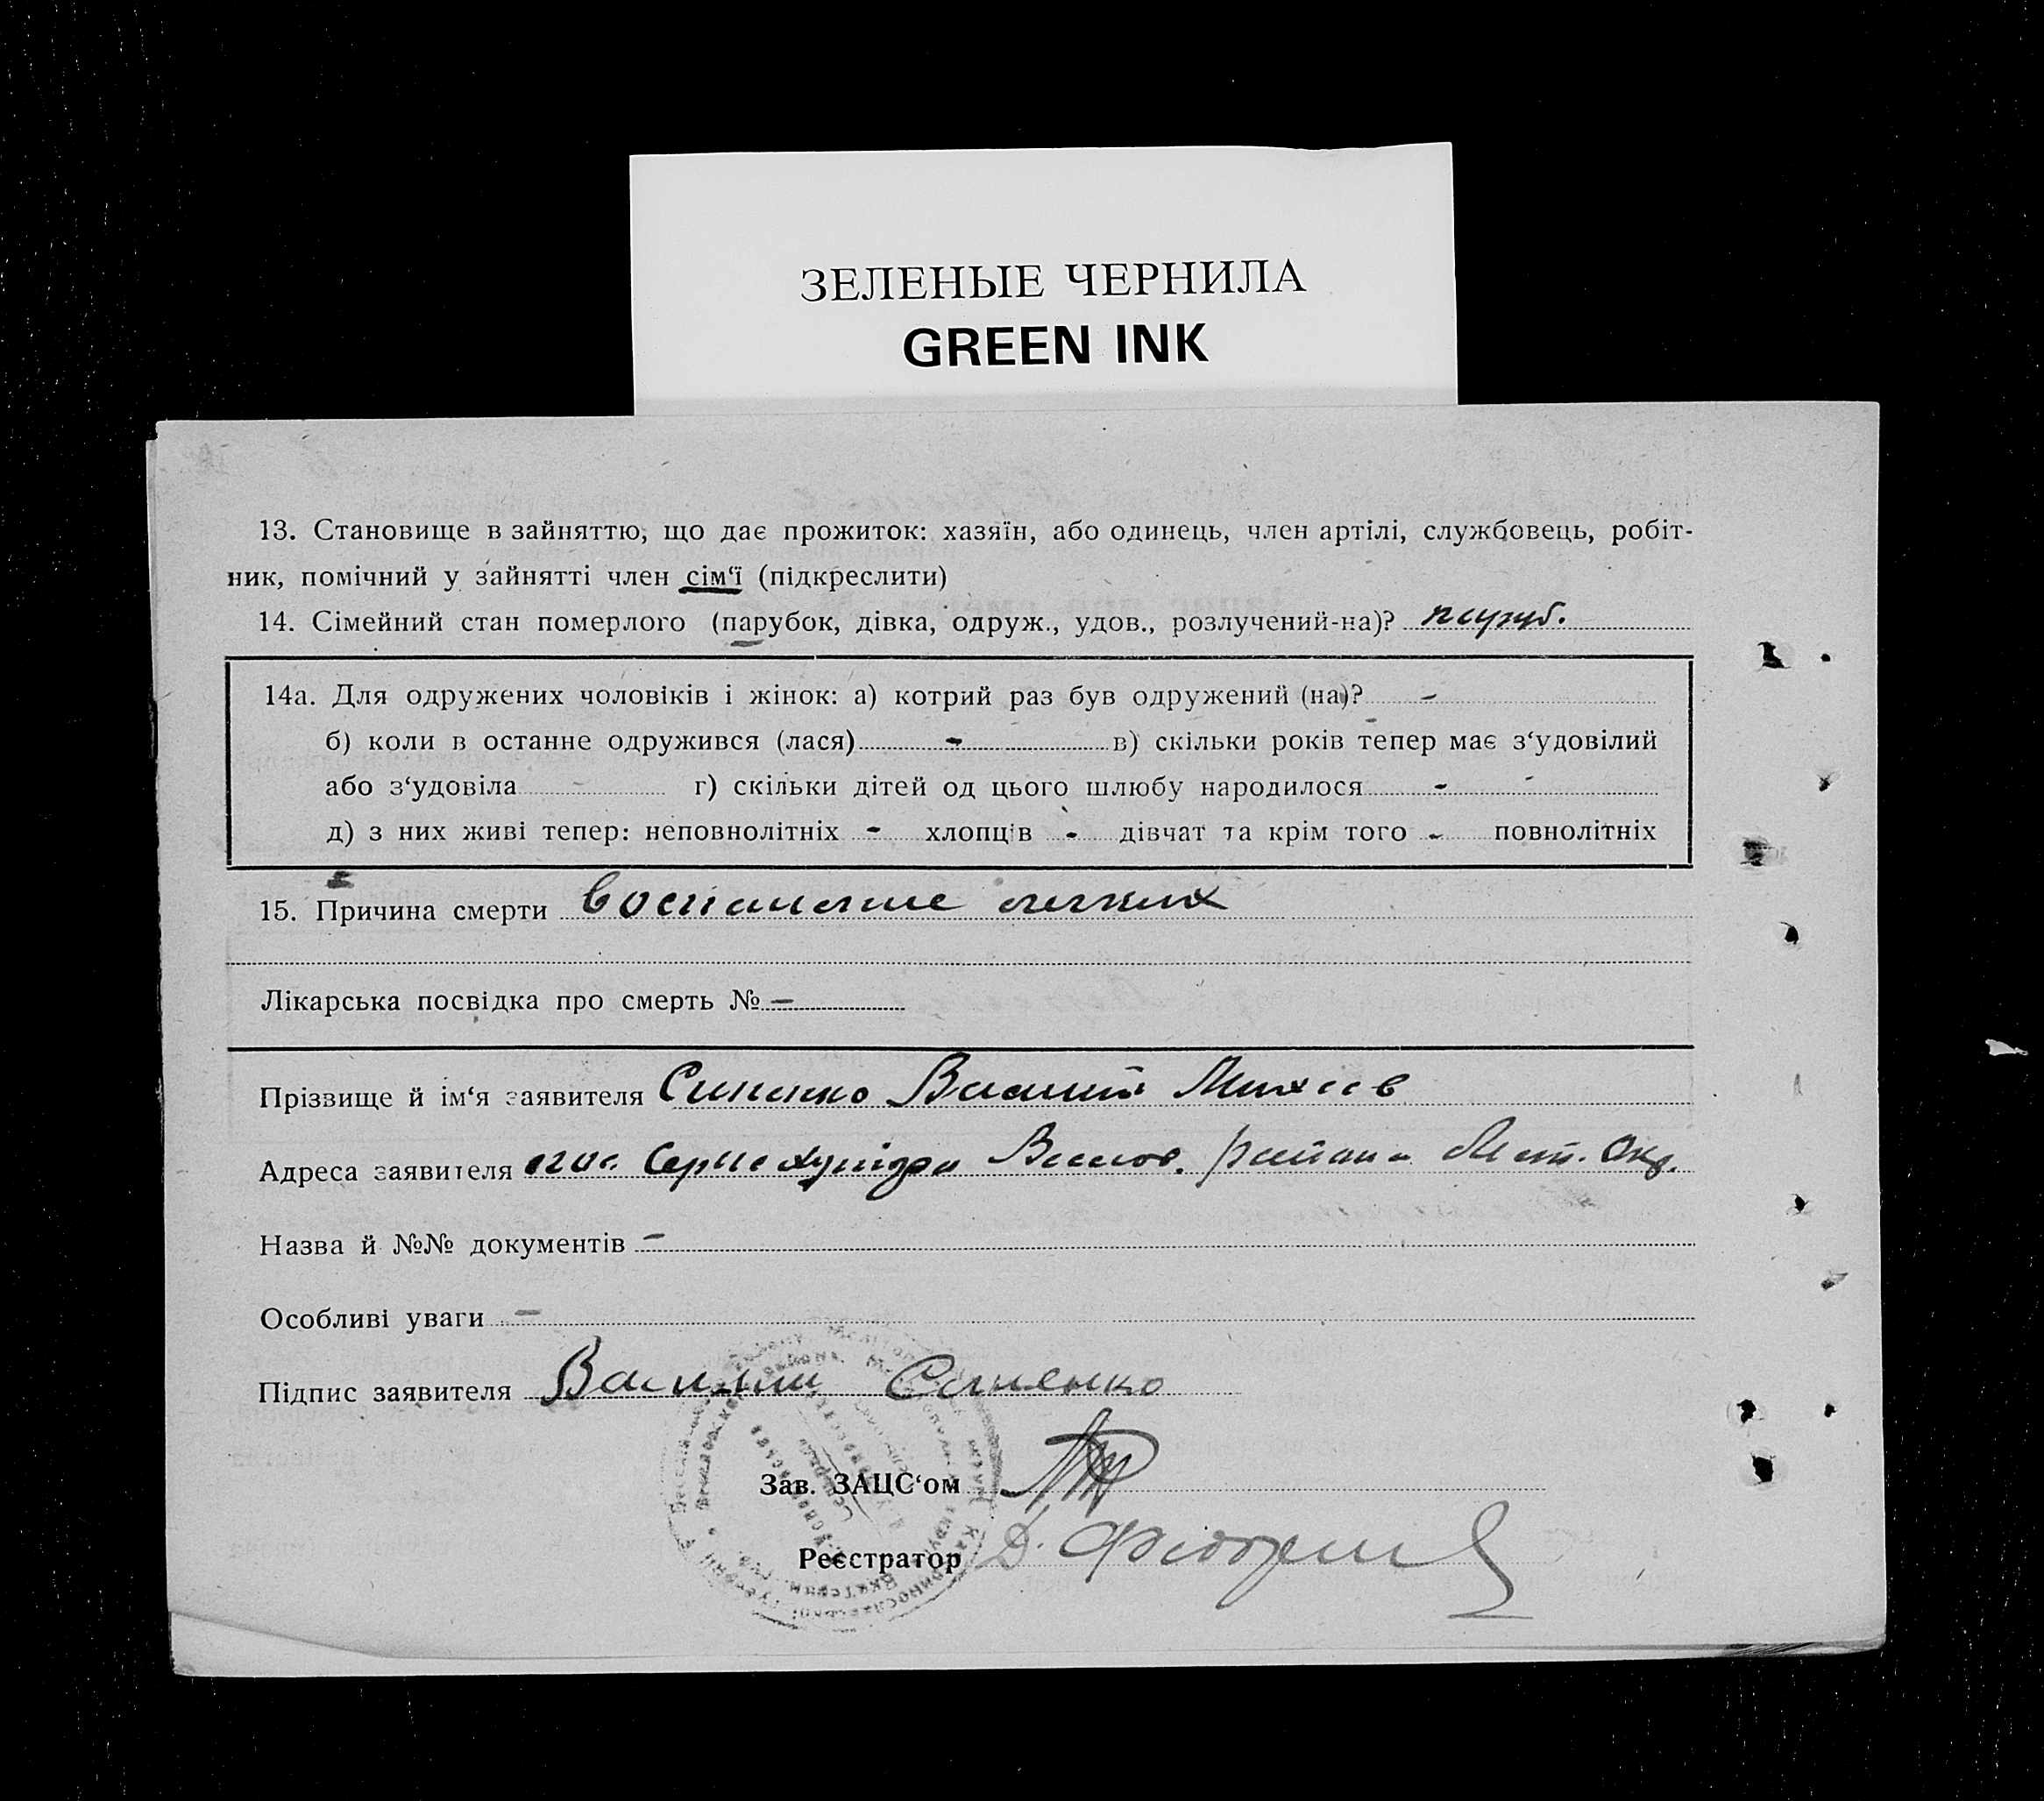 ЗЕЛЕНЫЕ ЧЕРНИЛА
GREEN INK
13. Становище в зайняттю, що дає прожиток: хазяїн, або одинець, член артілі, службовець, робіт-
ник, помічний у зайнятті член сім‘ї (підкреслити)
14. Сімейний стан померлого (парубок, дівка, одруж., удов., розлучений-на)? паруб.
14а. Для одружених чоловіків і жінок: а) котрий раз був одружений (на)? -
б) коли в останне одружився (лася) - в) скільки років тепер має з‘удовілий
або з‘удовіла - г) скільки дітей од цього шлюбу народилося -
д) з них живі тепер: неповнолітніх - хлопців - дівчат та крім того - повнолітніх
15. Причина смерти воспаление легких
Лікарська посвідка про смерть № —
Прізвище й ім‘я заявителя Синенко Василий Михеев
Адреса заявителя района Мелит. Окр.
Назва й №№ документів —
Особливі уваги —
Підпис заявителя Василий Синенко
Зав. ЗАЦС‘ом
Реєстратор Д.